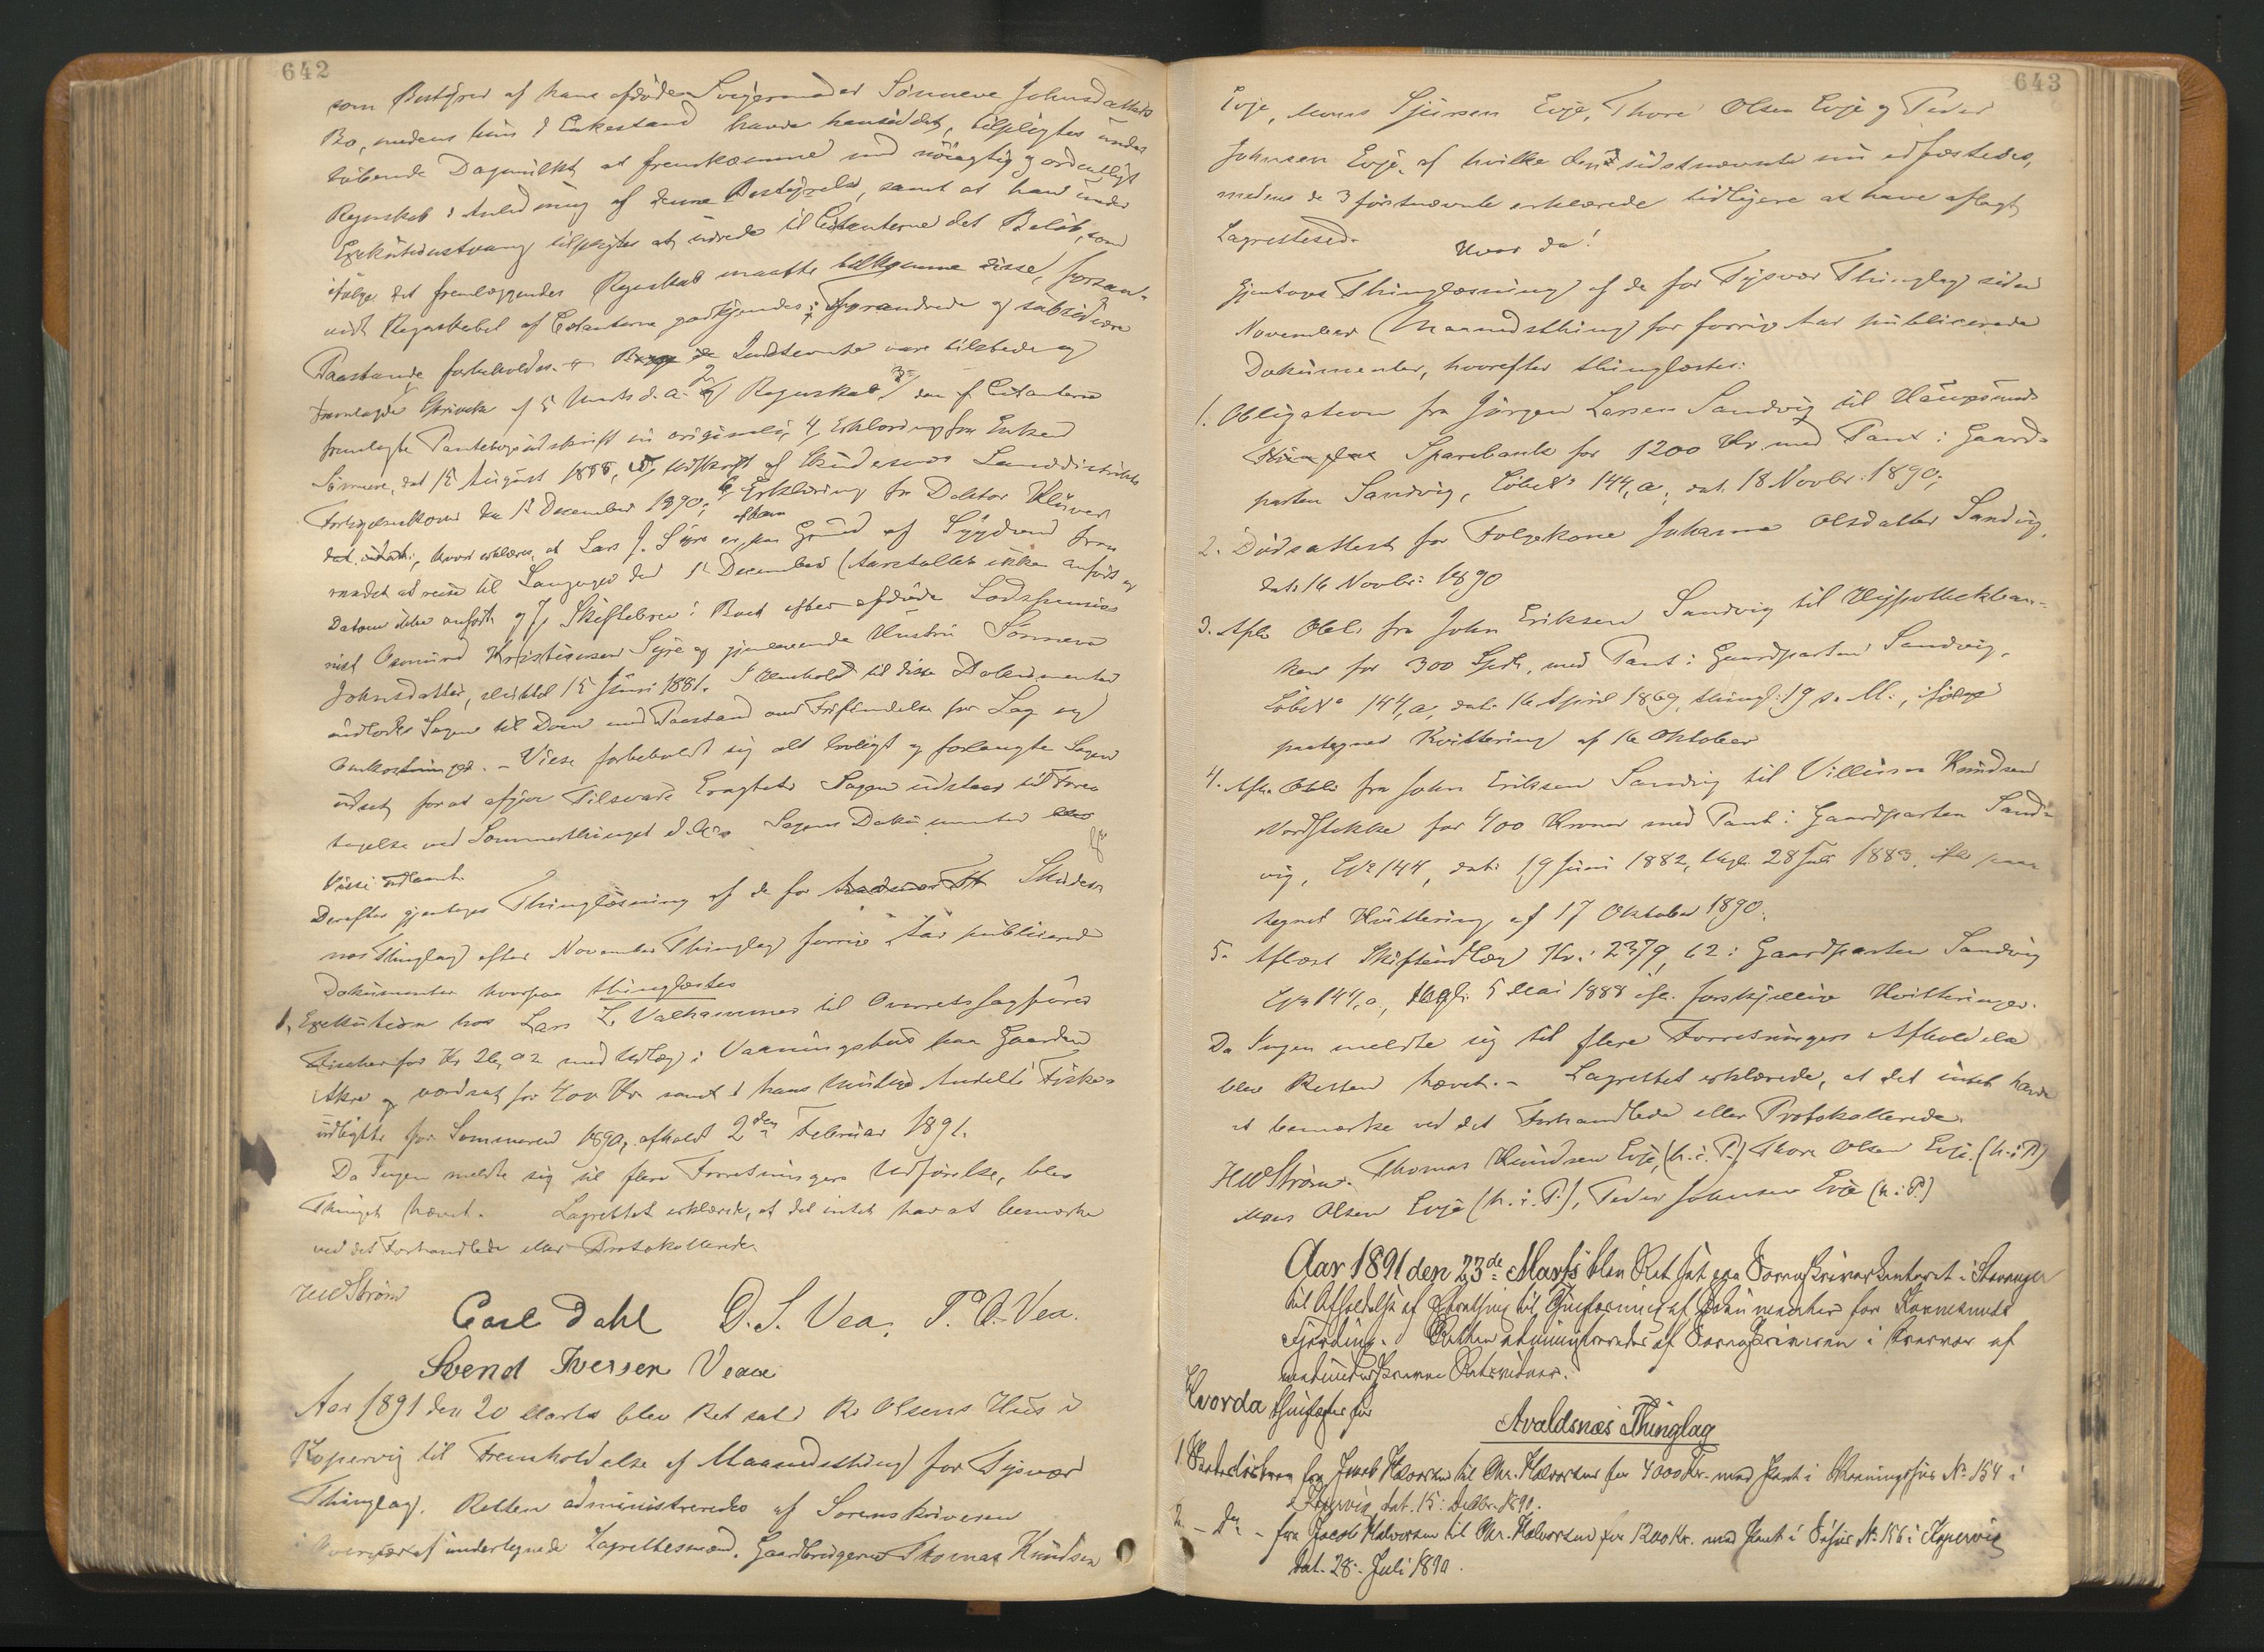 642
som Bestyrer af hans afdøde Svigermoder Sønneve Johnsdatters
Bo, medens hun i Enkestand havde hensiddet, tilpligtes under
løbende Dagmulkt at fremkomme med nøiagtig og ordentligt
Regnskab i Anledning af denne Bestyrelse, samt at han under
Exekutionstvang tilpligtes at udrede til Citanterne det Beløb, som
ifølge det fremlæggendes Regnskab maatte tilkomme disse, forsaa-
vidt Regnskabet af Citanterne godkjendes; forandrede og subsidiære
Paastande forbeholdes. Indstevnte var tilstede og
fremlagde Skrivelse af 5 Marts d. A. 2 Regnskab, 3 den af Citanterne
fremlagte Pantebogsudskrift in originali, 4, Erklæring fra Enken
Sønneve, dat 15 August 1888, 5, Udskrift af Skudesnes Landdistrikts
Forligskommission 1 December 1890; 6 Erklæring fra Doktor Klüver
dat. , hvori erklæres, at Lars J. Syre er paa Grund af Sygdom fra-
raadet at reise til Langaager den 1 December (Aarstallet ikke anført og
Datum ikke anført og 7, Skiftebrev i Boet efter afdøde Lodspensio-
nist Osmund Kristiansen Syre og gjenlevende Hustru Sønneve
Johnsdatter, sluttet 15 Juni 1881. I Henhold til disse Dokumenter
indlodes Sagen til Dom med Paastand om Frifindelse for Sag og
Omkostninger. – Viese forbeholdt sig alt lovligt og forlangte Sagen
udsat for at afgive Tilsvar. Eragtet: Sagen udstaar til Fore-
tagelse ved Sommerthinget d. A. Sagens Dokumenter blev
Viese udlaant.
Derefter gjentoges Thinglæsning af de for Skudes-
nes Thinglag efter November Thinglag forrige Aar publicerede
Dokumenter hvorpaa thinglæstes
1, Exekution hos Lars L. Valhammer til Overretssagfører
Fischer for Kr 26,02 med Udlæg i Vaaningshus paa Gaarden
Akre og vordsat for 400 Kr samt i hans Andel i Fiske-
udbytte for Sommeren 1890, afholdt 2den Februar 1891.
Da Ingen meldte sig til flere Forretningers Udførelse, blev
Thinget hævet. Lagrettet erklærede, at det intet har at bemærke
ved det Forhandlede eller Protokollerede
HWStrøm
Carl Dahl O. S. Vea, T. O. Vea.
Svend Iversen Veaa
Aar 1891 den 20 Marts blev Ret sat i R. Olsens Hus i
Kopervig til Fremholdelse af Maanedsthing for Tysvær
Thinglag. Retten administreredes af Sorenskriveren
i Overvær af undertegnede Lagrettesmænd, Gaardbrugerne Thomas Knudsen
643
Evje, Mons Sjursen Evje, Thore Olsen Evje og Peder
Johnsen Evje, af hvilke den sidstnævnte nu edfæstedes,
medens de 3 førstnævnte erklærede tidligere at have aflagt
Lagrettesed.
Hvor da!
Gjentoges Thinglæsning af de for Tysvær Thinglag siden
November (Maanedsthing) for forrige Aar publicerede
Dokumenter, hvorefter thinglæstes:
1. Obligation fra Jørgen Larsen Sandvig til Haugesunds
Sparebank for 1200 Kr med Pant i Gaard-
parten Sandvig, Løbe No 144, a, dat. 18 Novbr. 1890;
2. Dødsattest for Folgekone Johanna Olsdatter Sandvig,
dat. 16 Novbr. 1890
3. Afl. Obl. fra John Eriksen Sandvig til Hypothekban-
ken for 300 Spd., med Pant i Gaardparten Sandvig,
Løbe No 144, a, dat. 16 April 1869, thingl. 19 s. M., ifølge
paategnet Kvittering af 16 Oktober
4. Afl. Obl. fra John Eriksen Sandvig til Villum Knudsen
Nordstokke for 400 Kroner med Pant i Gaardparten Sand-
vig, L No 144, dat. 19 Juni 1882, thgl. 28 Juli 1883, ifl. paa
tegnet Kvittering af 17 Oktober 1890.
5. Aflæst Skifteudlæg Kr. 2379,62 i Gaardparten Sandvig
L No 144, a, thgl. 5 Mai 1888 ifl. forskjellige Kvitteringer.
Da Ingen meldte sig til flere Forretningers Afholdelse
blev Retten hævet. – Lagrettet erklærede, at det intet havde
at bemærke ved det Forhandlede eller Protokollerede.
HWStrøm. Thomas Knudsen Evje, (h. i. P.) Thore Olsen Evje. (h. i. P)
Mons Olsen Evje (h. i. P.), Peder Johnsen Evje (h. i. P.)
Aar 1891 den 23de Marts blev Ret sat paa Sorenskriverkontoret i Stavanger
til Afholdelse af til Thinglæsning af Dokumenter for Karmsunds
Fjerding. Retten administreredes af Sorenskriveren i Overvær af
undertegnede Retsvidner.
Hvorda thinglæstes for
Avaldsnæs Thinglag
1. fra Jacob Halvorsen til Chr. Halvorsen for 4000 Kr. med Pant i Vaaningshus No 154 i
Kopervig dat. 15. Decbr. 1890.
2. – Do – fra Jacob Halvorsen til Chr. Halvorsen for 1200 Kr. med Pant i Søhus No 156 i Kopervig
dat. 28. Juli 1890.